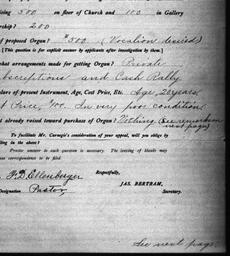 ising 500 on floor of Church and 100 in Gallery
rship? 200
of proposed Organ? $500 (Vocation desired)
[This question is for explicit answer by applicants after investigation by them.]
hat arrangements made for getting Organ? Private
bscriptions and Cash Rally
lars of present Instrument, Age, Cost Price, Etc. Age, 20 years,
t Price, $100. In very poor condition
t already raised toward purchase of Organ? Nothing (See remarks on
next page)
To facilitate Mr. Carnegie's consideration of your appeal, will you oblige by
lling in the above?
Precise answer to each question is necessary. The setting of blanks may
ean correspondence to be filed.
Respectfully,
JAS. BERTRAM,
Secretary.
Ellenberger
Designation Pastor
See next page.